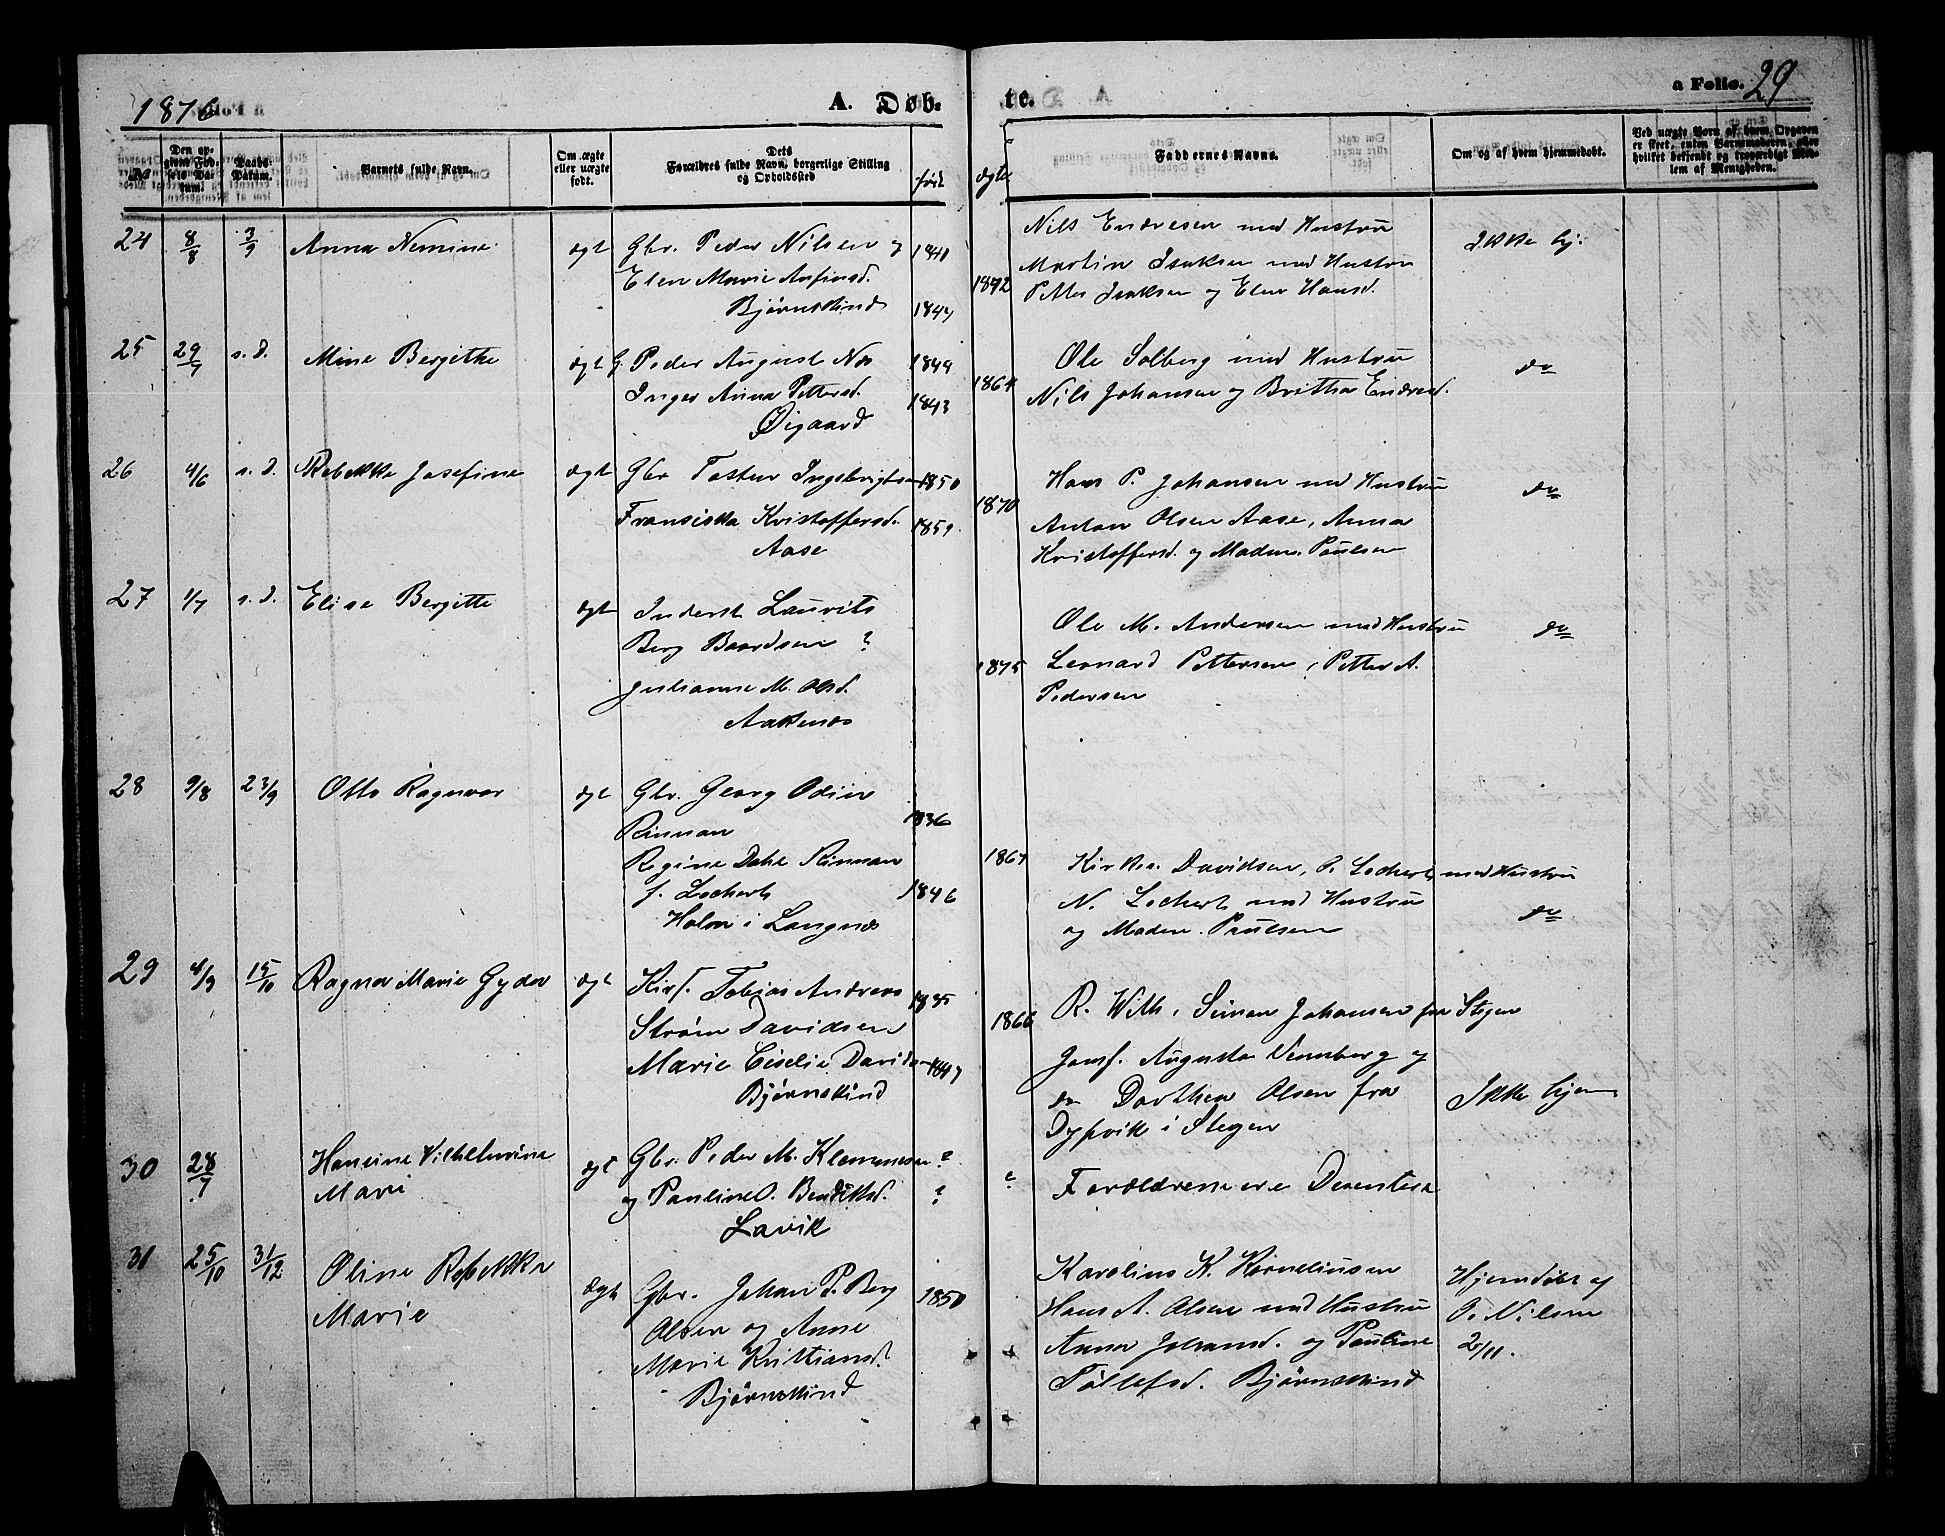 1876
A. Døb-
te.
a Folio. 29
№
Den op-
given Fød-
sels Da-
tum.
Daabs-
Datum.
Barnets fulde Navn.
Om ægte
eller uægte
født.
Dets
Forældres fulde Navn, borgerlige Stilling
og Opholdssted
født
ægte
Faddernes Navne.
Om og af hvem hjemmedøbt.
Ved uægte Born af hvem Opgaven
er skeet, enten Barnemoderen, eller
hvilket bekjendt og troværdigt Med-
lem af Menigheden.
24 8/8 3/9 Anna Nemine ægt Gbr. Peder Nilsen og 1840
Elen Marie Arfinsd.
Bjørnskind 1847
1872
Nils Endresen med Hustru
Martin Isaksen med Hustru
Petter Isaksen og Elen Hansd.
Ikke hj:
25 29/7 s. d. Mine Bergithe ægt G. Peder August Nos 1849
Inger Anna Pettersd. 1843
Øigaard
1864
Ole Solberg med Hustru
Nils Johansen og Britha Endresd.
do
26 4/6 s. d. Rebekka Josefine ægt Gbr Tosten Ingebrigtsen 1850
Fransiska Kristoffersd. 1851
Aase
1870
Hans P. Johansen med Hustru
Anton Olsen Aase, Anna
Kristoffersd. og Madm. Paulsen
do
27 1/7 s. d. Elise Bergitte ægt Inderst Lauvits
Berg Baardsen ?
Julianne M. Olsd.
Aakenes
1875
Ole M. Andersen med Hustru
Leonard Pettersen, Petter A.
Pedersen
do
28 9/8 23/9 Otto Ragnvar ægt Gbr. Georg Odin
Rinnan 1836
Regine Dahl Rinnan
f. Lochert 1846
Holm i Langnes
1867
Kirkes. Davidsen, P. Lochert med Hustru
N. Lochert med Hustru
og Madm. Paulsen
do
29 4/9 15/10 Ragna Marie Gyda ægt Kirs. Tobias Andreas 1835
Strøm Davidsen
Marie Ciselie Davidsen 1847
Bjørnskind
1866
R. With, Simon Johansen fra Stegen
Jomf. Augusta Vennberg og
do Dorthea Olsen fra
Dypvik i Stegen
Ikke hjem
30 28/7 Hansine Vilhelmine
Marie ægt Gbr. Peder M. Klemmesen ?
og Pauline O. Bendiksd. ?
Lavik
?
Forældrene ere Desentere
31 25/10 31/12 Oline Rebekka
Marie ægt Gbr. Johan P. Berg 1850
Olsen og Anne
Marie Kristiansd.
Bjørnskind
Karolius K. Kornelinsen
Hans A. Olsen med Hustru
Anna Johansd. og Pauline
Tollefsd. Bjørnskind
Hjemdøbt af
O. Nilsen
2/11.